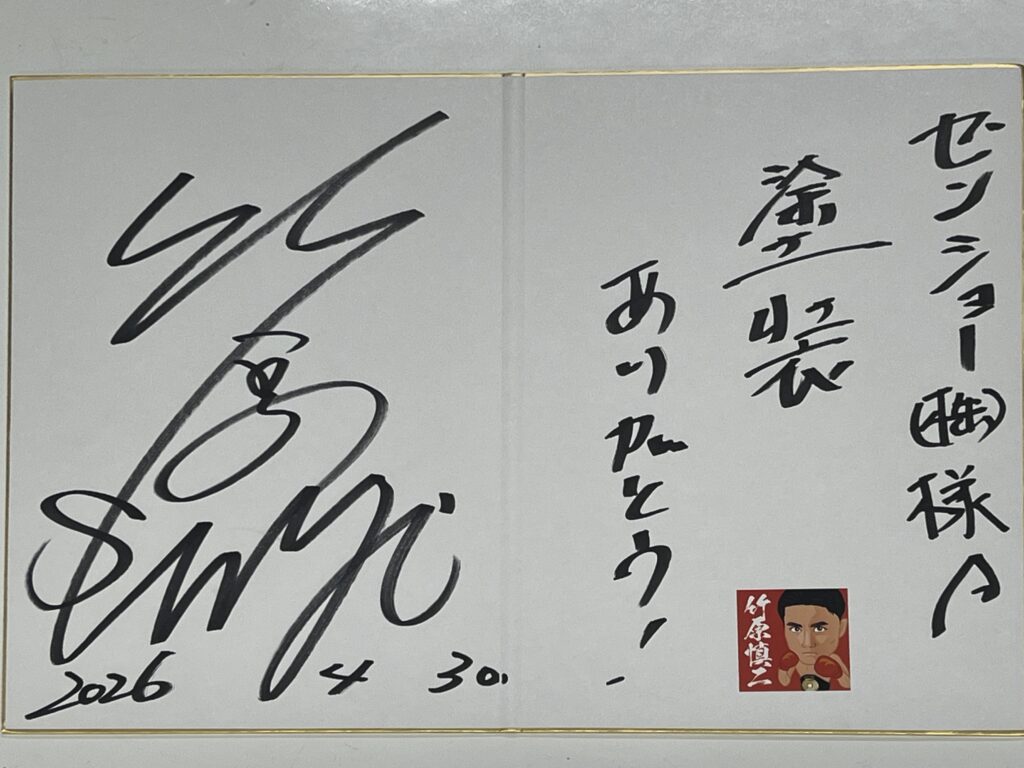 ゼンショー㈱様へ
塗装
ありがとう!!
竹原慎二
竹原
Shinji
2026 4 30.